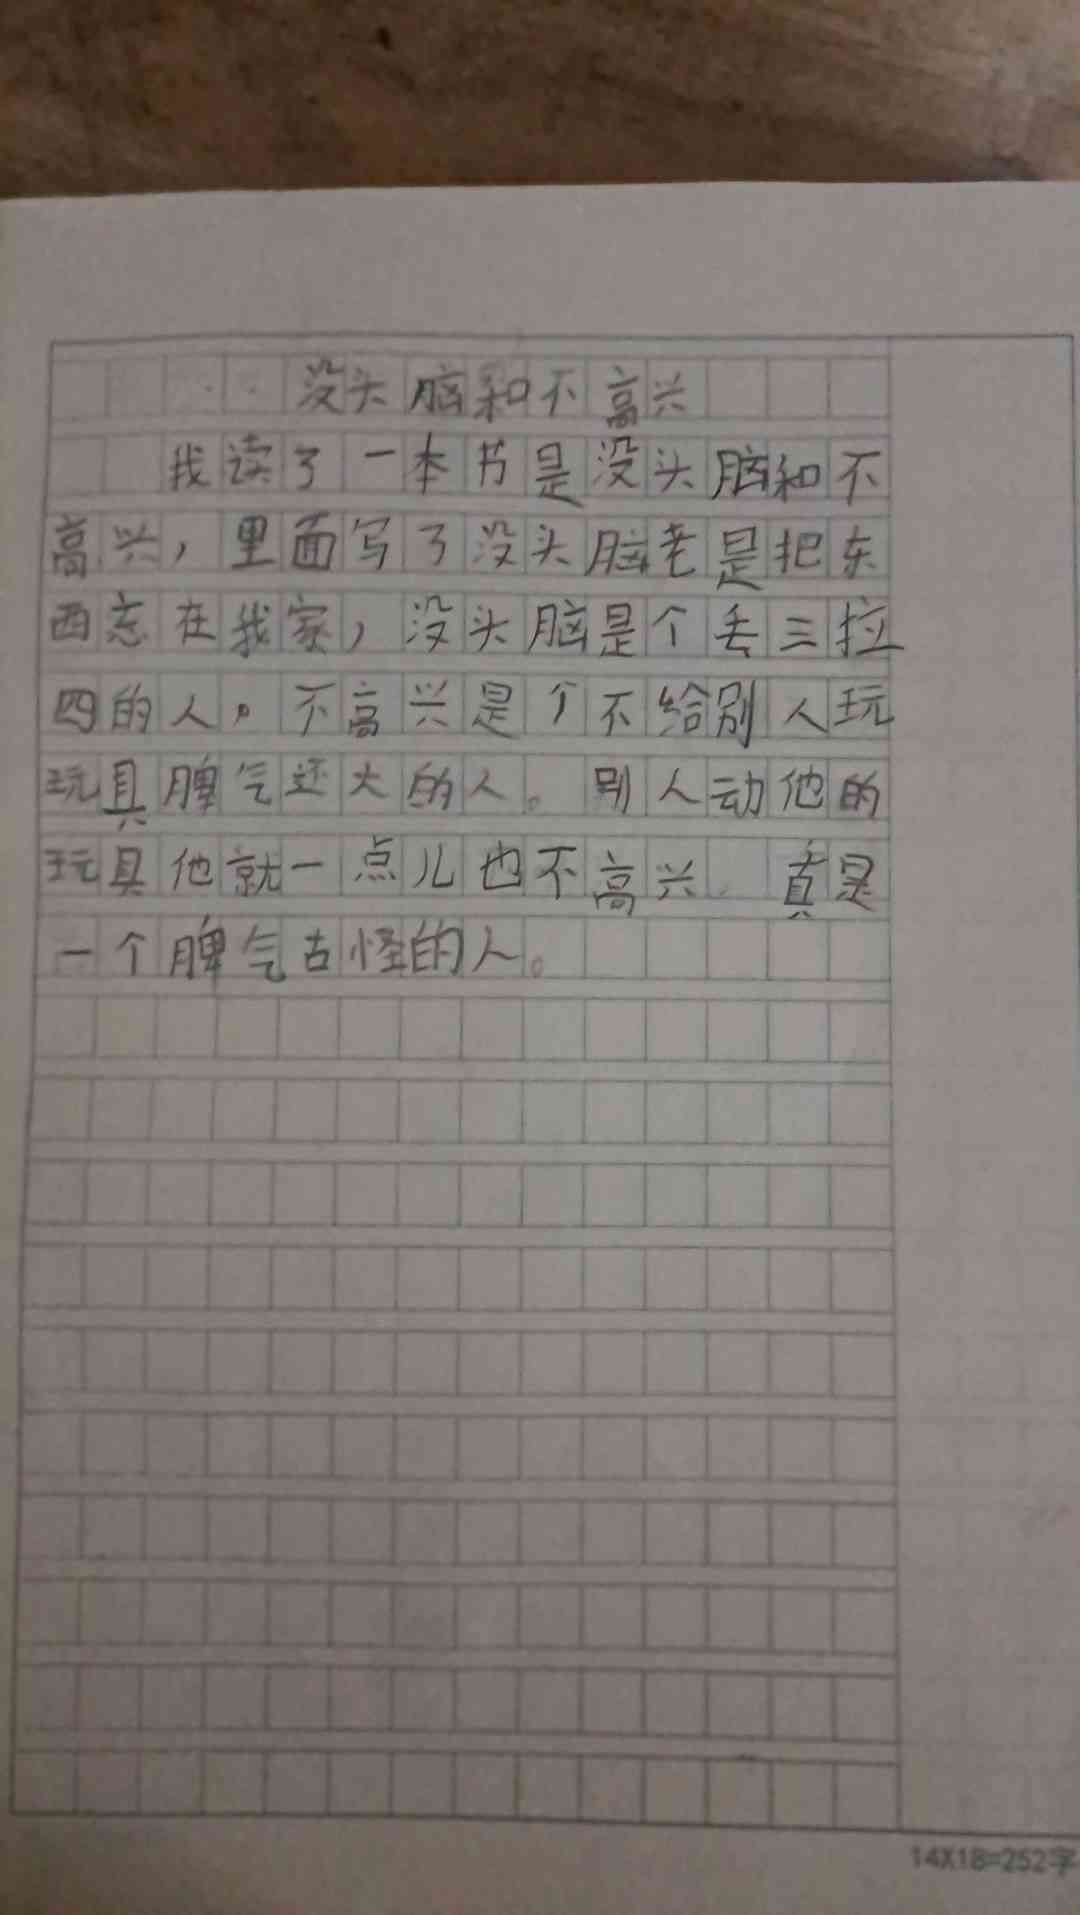 没头脑和不高兴
我读了一本书是没头脑和不
高兴，里面写了没头脑老是把东
西忘在我家，没头脑是个丢三拉
四的人，不高兴是个不给别人玩
玩具脾气还大的人。别人动他的
玩具他就一点儿也不高兴，真是
一个脾气古怪的人。
14X18=252字